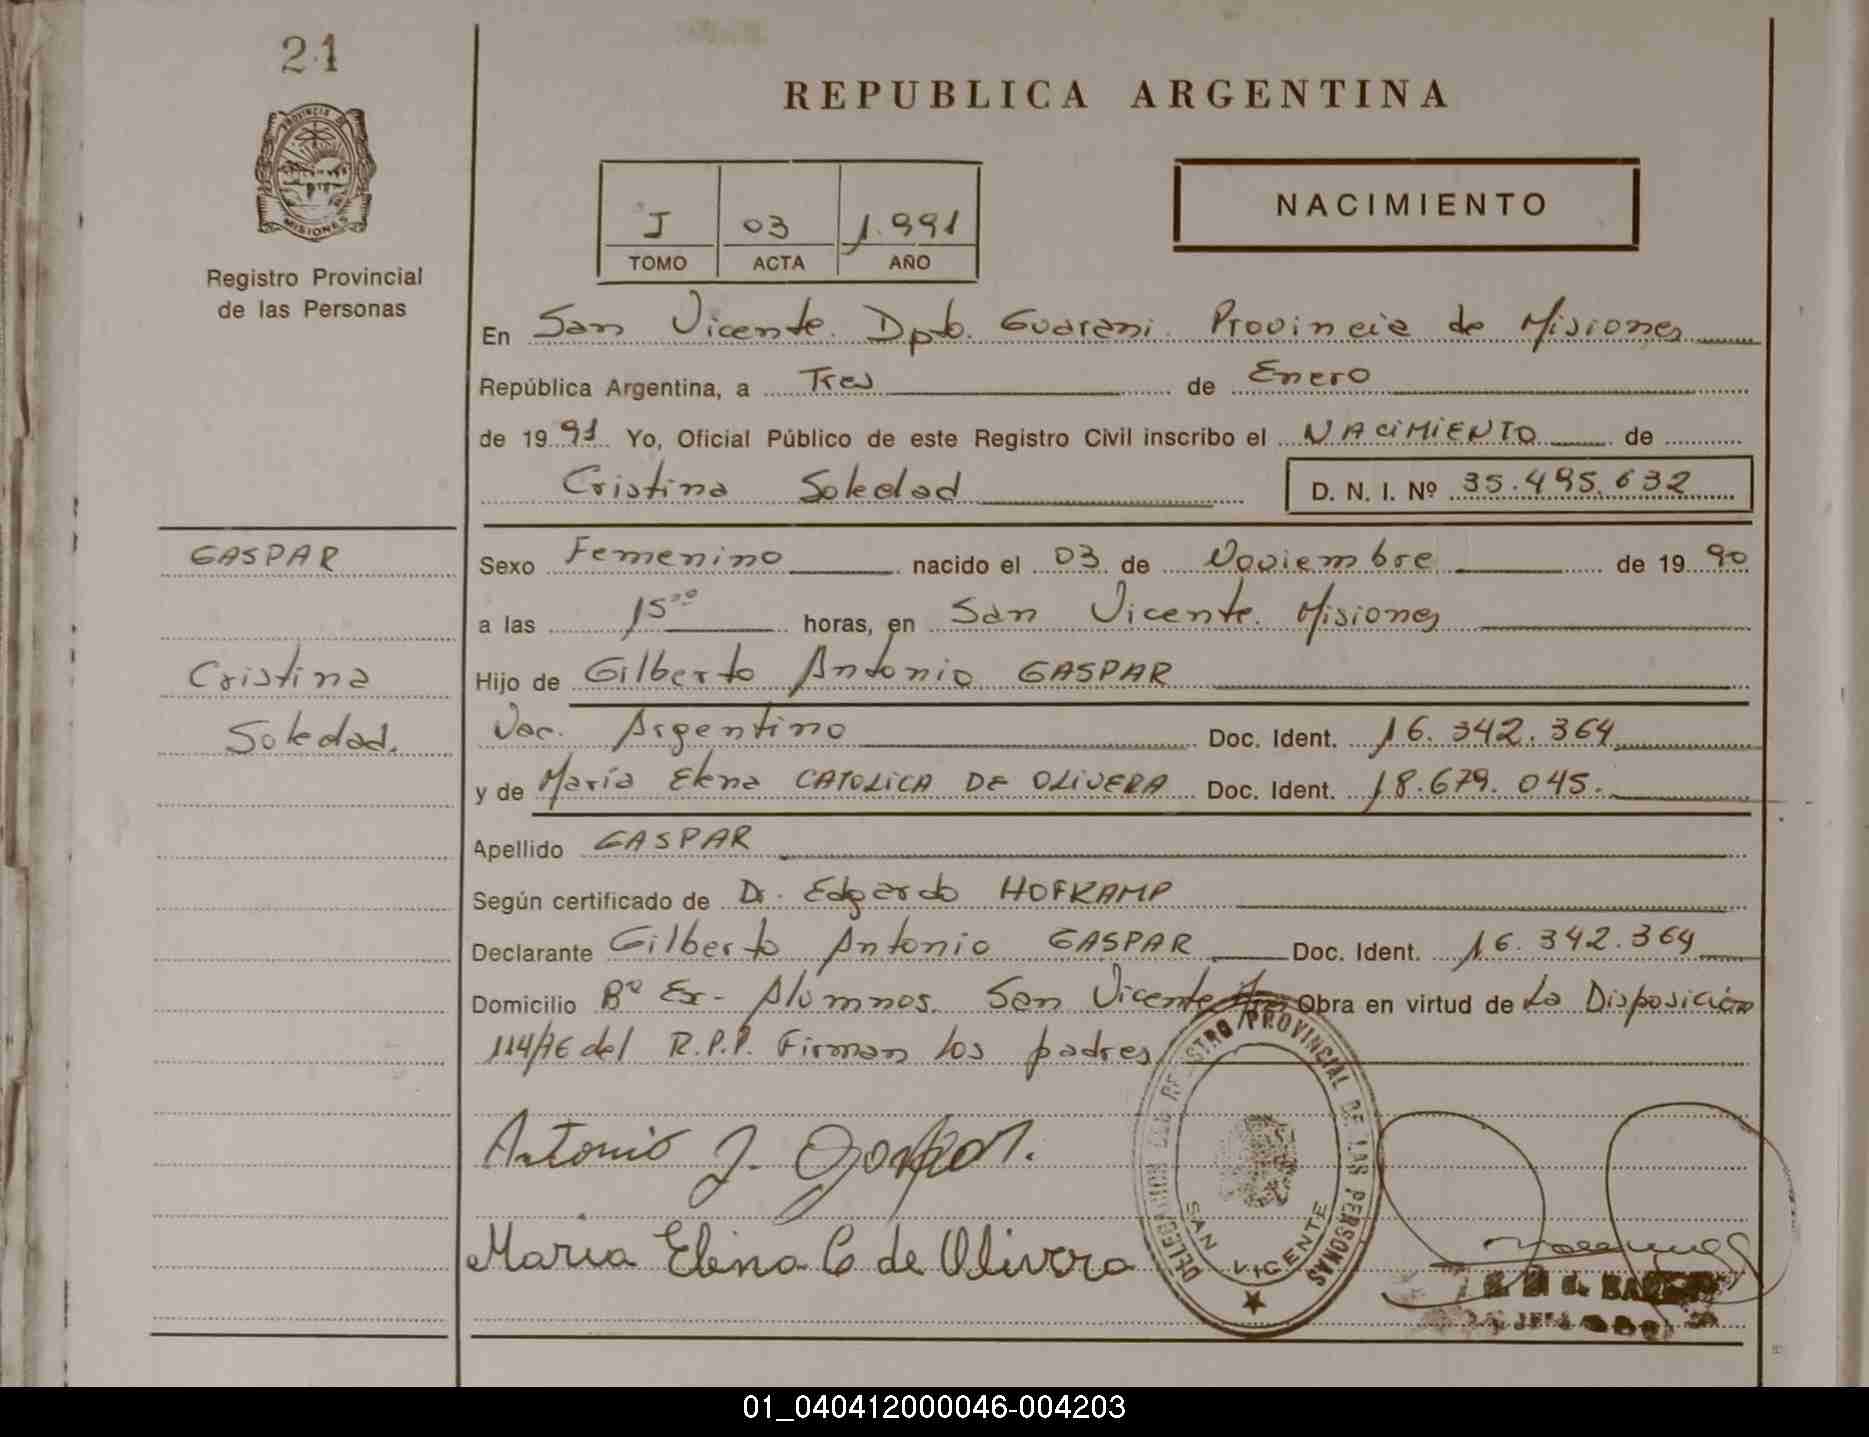 21
REPUBLICA ARGENTINA
PROVINCIA DE
MISIONES
Registro Provincial
de las Personas
I 03 1.991
TOMO ACTA AÑO
NACIMIENTO
En San Vicente. Dpto. Guarani. Provincia de Misiones
República Argentina, a Tres de Enero
de 1991 Yo, Oficial Público de este Registro Civil inscribo el NACIMIENTO de
Cristina Soledad D. N. I. Nº 35.495.632
GASPAR
Cristina
Soledad.
Sexo Femenino nacido el 03 de Noviembre de 1990
a las 15⁰⁰ horas, en San Vicente. Misiones
Hijo de Gilberto Antonio GASPAR
Nac. Argentino Doc. Ident. 16.342.364
y de María Elena CATOLICA DE OLIVERA Doc. Ident. 18.679.045.
Apellido GASPAR
Según certificado de Dr. Edgardo HOFKAMP
Declarante Gilberto Antonio GASPAR Doc. Ident. 16.342.364
Domicilio Bº Ex-Alumnos. San Vicente Obra en virtud de La Disposición
114/76 del R.P.P. Firman los padres
Antonio J. Gaspar.
Maria Elena C de Olivera
DELEGACION DEL REGISTRO PROVINCIAL DE LAS PERSONAS
SAN VICENTE
01_040412000046-004203